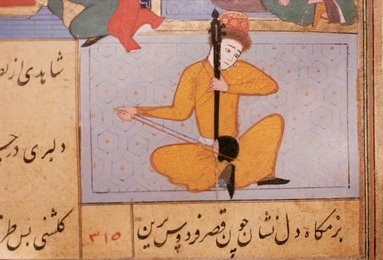 شاهدی از
دلبری در
گلشنی بس
بزمگاه دل نشان چون قصر فردوس برین
۳۱۵